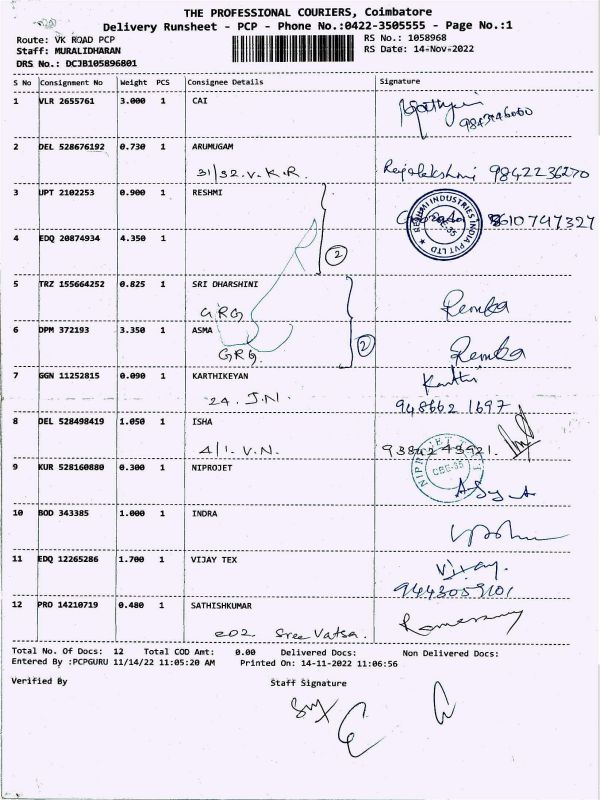 THE PROFESSIONAL COURIERS, Coimbatore
Delivery Runsheet - PCP - Phone No.:0422-3505555 - Page No.:1
Route: VK ROAD PCP
Staff: MURALIDHARAN
DRS No.: DCJB105896801
RS No.: 1058968
RS Date: 14-Nov-2022
S No Consignment No Weight PCS Consignee Details Signature
1 VLR 2655761 3.000 1 CAI
2 DEL 528676192 0.730 1 ARUMUGAM
31/32.V.K.R. Rajalakshmi 9842236270
3 UPT 2102253 0.900 1 RESHMI
8610747327
INDUSTRIES INDIA PVT LTD
CBE-35
4 EDQ 20874934 4.350 1
2
5 TRZ 155664252 0.825 1 SRI DHARSHINI
GRG Remba
6 DPM 372193 3.350 1 ASMA
GRG. Remba
2
7 GGN 11252815 0.090 1 KARTHIKEYAN Karthi
24. J.N. 948662 1697
8 DEL 528498419 1.050 1 ISHA
4/1. V.N. 9384243921.
9 KUR 528160880 0.300 1 NIPROJET
NIPROJET
CBE-35
10 BOD 343385 1.000 1 INDRA
11 EDQ 12265286 1.700 1 VIJAY TEX
Vijay.
9443059101
12 PRO 14210719 0.480 1 SATHISHKUMAR
202 Sree Vatsa.
Total No. Of Docs: 12 Total COD Amt: 0.00 Delivered Docs: Non Delivered Docs:
Entered By :PCPGURU 11/14/22 11:05:20 AM Printed On: 14-11-2022 11:06:56
Verified By Staff Signature